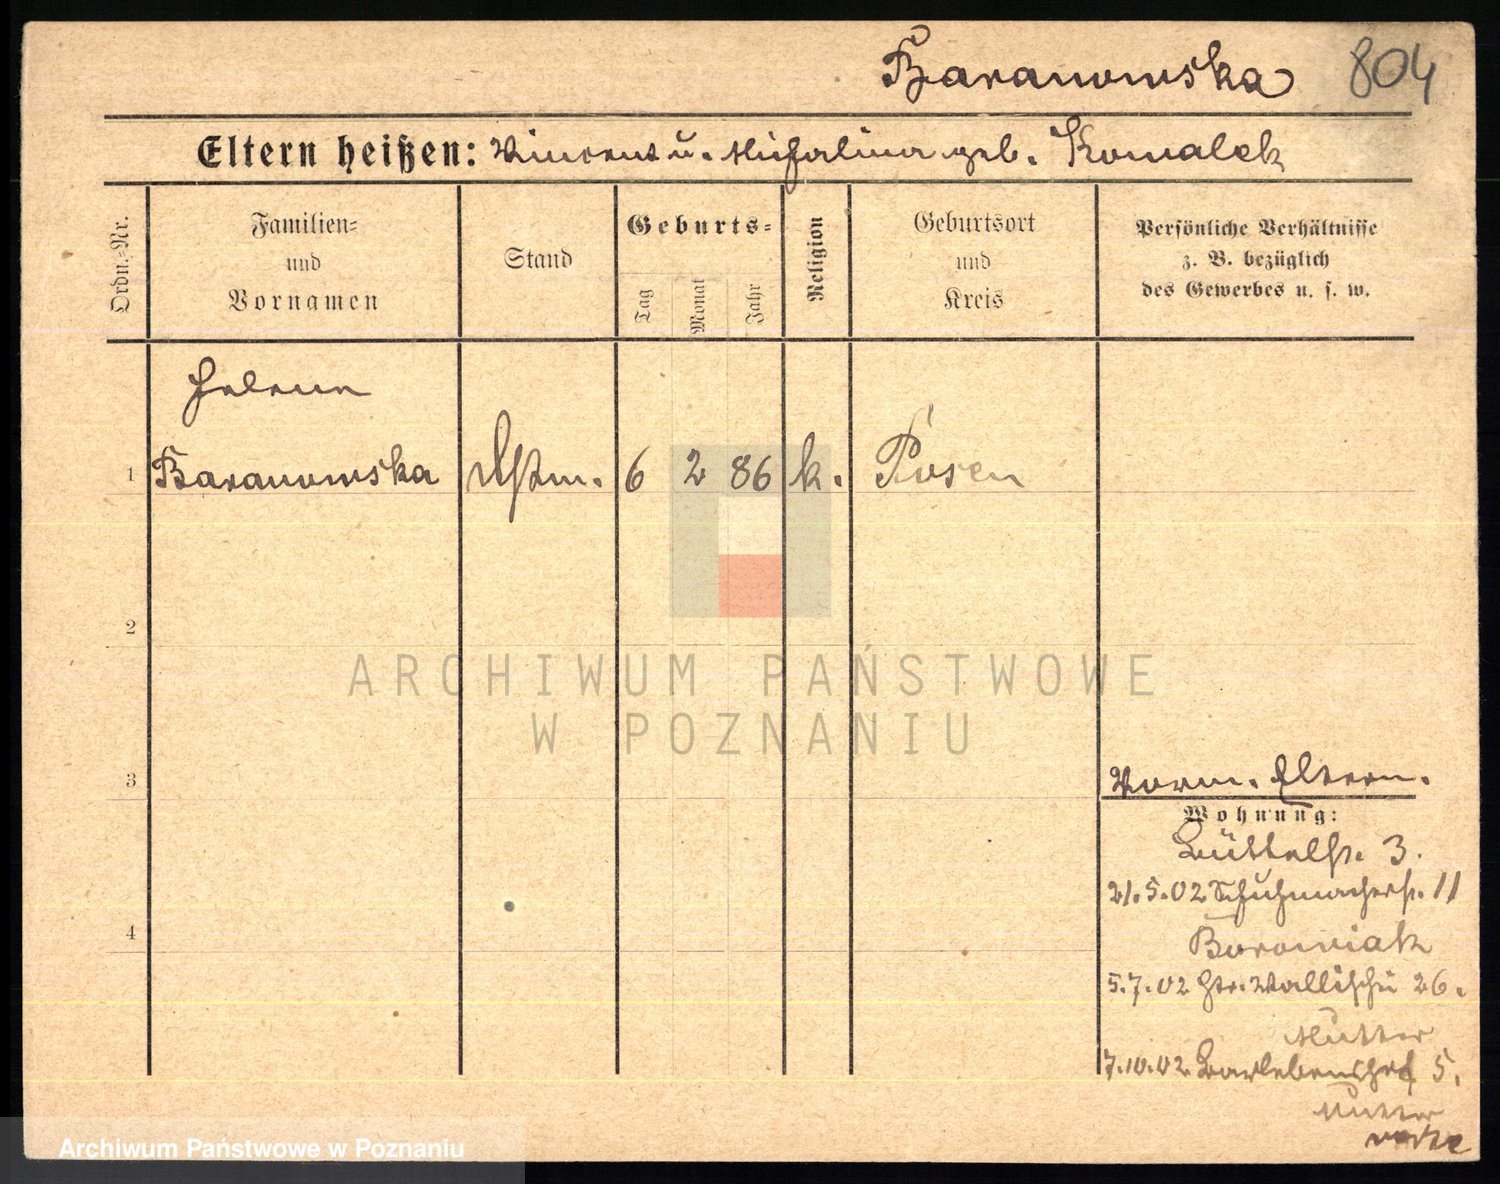 Baranowska 804
Eltern heißen: Vincent u. Michalina geb. Kowalek
Ordn.-Nr.
Familien-
und
Vornamen
Stand
Geburts-
Tag
Monat
Jahr
Religion
Geburtsort
und
Kreis
Persönliche Verhältnisse
z. B. bezüglich
des Gewerbes u. s. w.
Helena
1 Baranowska 6 2 86 k. Posen
2
ARCHIWUM PAŃSTWOWE
W POZNANIU
3
Vorm. Eltern.
Wohnung:
Büttelstr. 3.
21.5.02 Schuhmacherstr. 11
4
Borowiak
5.7.02 Wallischei 26.
Mutter
7.10.02 5.
Mutter
Archiwum Państwowe w Poznaniu